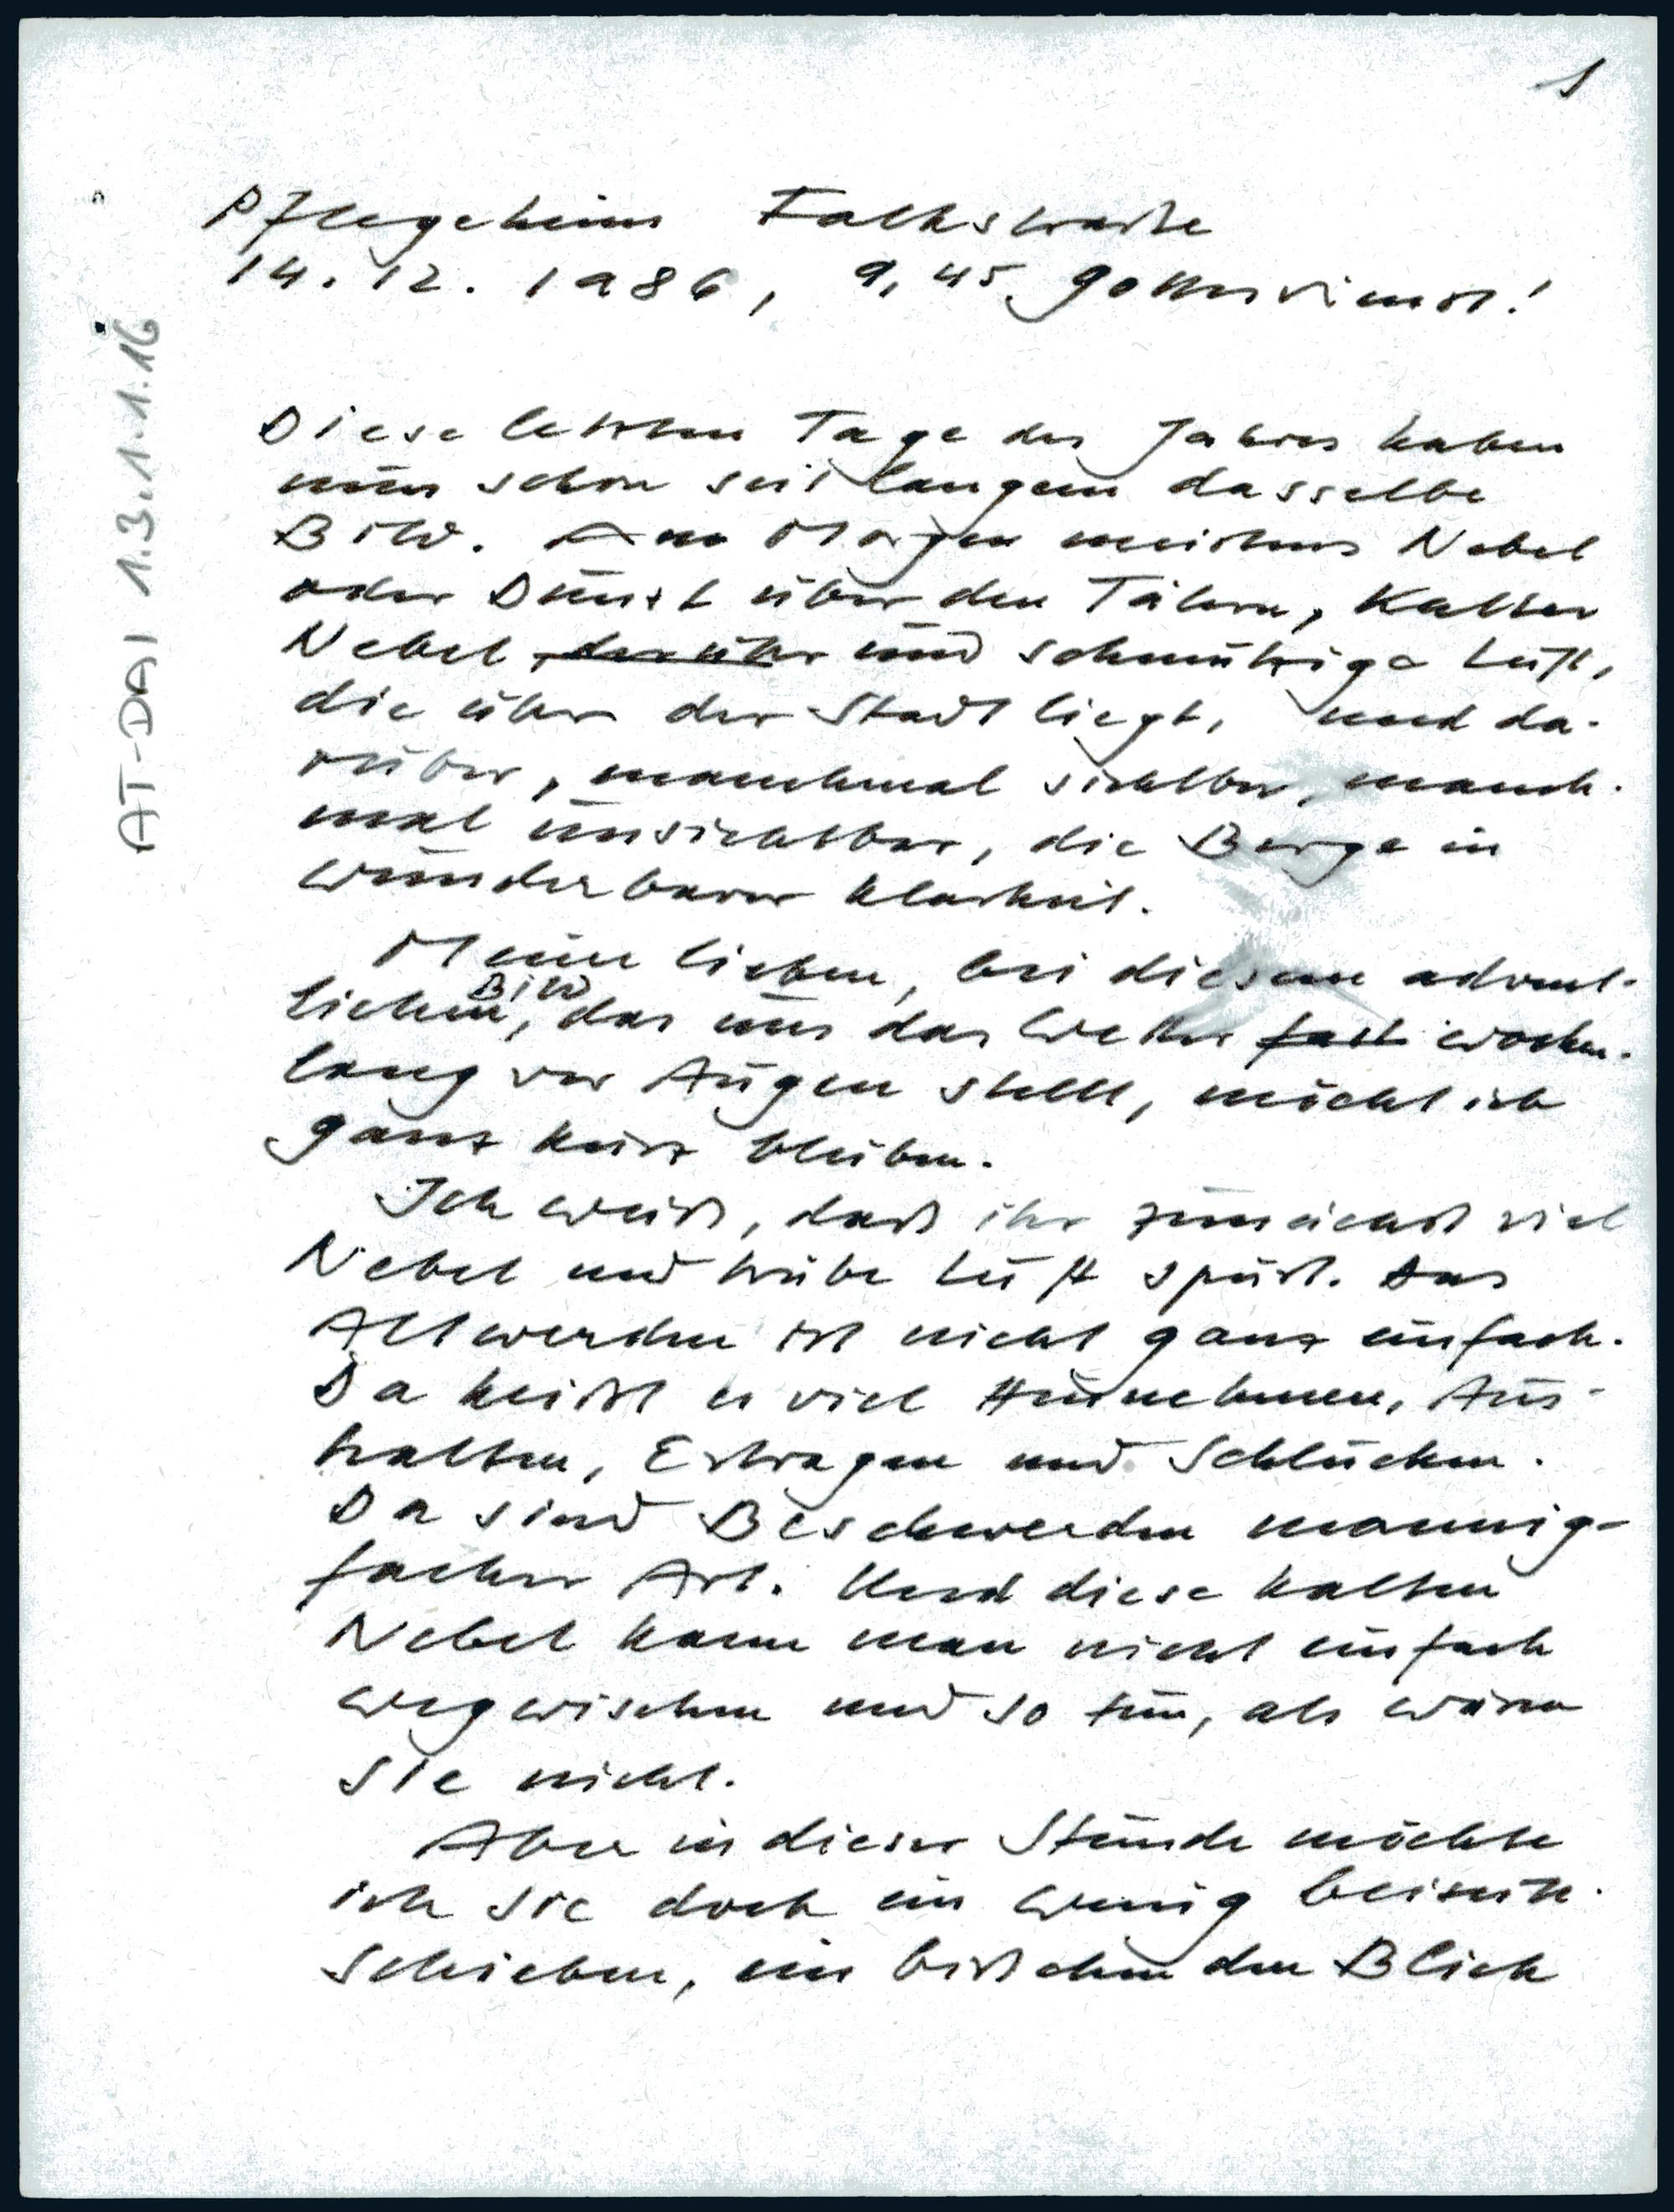 1
Pflegeheim Falkstraße
14.12.1986, 9,45 Gottesdienst!
AT-DAI 1.3.1.1.16
Diese letzten Tage des Jahres haben
nun schon seit langem dasselbe
Bild. Am Morgen meistens Nebel
oder Dunst über den Tälern, Kalter
Nebel, darüber und schmutzige Luft,
die über der Stadt liegt, und da-
rüber, manchmal sichtbar, manch-
mal unsichtbar, die Berge in
wunderbarer Klarheit.
Meine lieben, bei diesem advent-
Bild
lichen, das uns das Wetter fast wochen-
lang vor Augen stellt, möcht ich
ganz kurz bleiben.
Ich weiß, daß ihr zunächst viel
Nebel und trübe Luft spürt. Das
Altwerden ist nicht ganz einfach.
Da heißt es viel Hinnehmen, Aus-
halten, Ertragen und Schlucken.
Da sind Beschwerden mannig-
facher Art. Und diese kalten
Nebel kann man nicht einfach
wegwischen und so tun, als wären
sie nicht.
Aber in dieser Stunde möchte
ich sie doch ein wenig beiseite-
schieben, ein bißchen den Blick